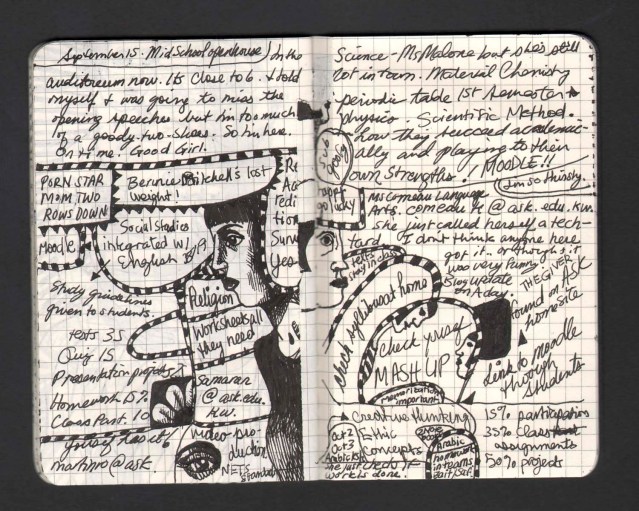 September 15. Mid School open house In the
auditoreum now. It's close to 6. I told
myself I was going to miss the
opening speeches but I'm too much
of a goody-two-shoes. So I'm here.
On time. Good Girl.
PORN STAR
MOM TWO
ROWS DOWN
Bernice Bitchell's lost
weight!
Moodle
Social Studies
integrated w/
English
Study guidelines
given to students.
tests 35
Quiz 15
Presentation projects
Homework 15%
Class Part. 10
Religion
Worksheets all
they need
Samaran
@ask.edu.
kw.
video-pro-
duction
NETS
Science - Ms Malone but she's still
not in room. Material Chemistry
periodic table 1st Semester
physics. Scientific Method.
how they succeed academic-
ally and playing to their
own strengths. MOODLE!!
I'm so thirsty.
Ms Comeau Language
Arts. comeau k @ask.edu.kw.
She just called herself a tech-
tard
I don't think anyone here
got it. or though it
was very funny.
Blog update
on A day.
THE GIVER
found on ASK
home site
tests
stay in class
check syllabus at home
check yourself
MASH UP
Link to moodle
through
students
Memorization
important
Creative thinking
Ethic
Concepts
act 2
act 3
Arabic
homework
in terms
she just checks if
work is done.
15% participation
35% class
assignments
50% projects